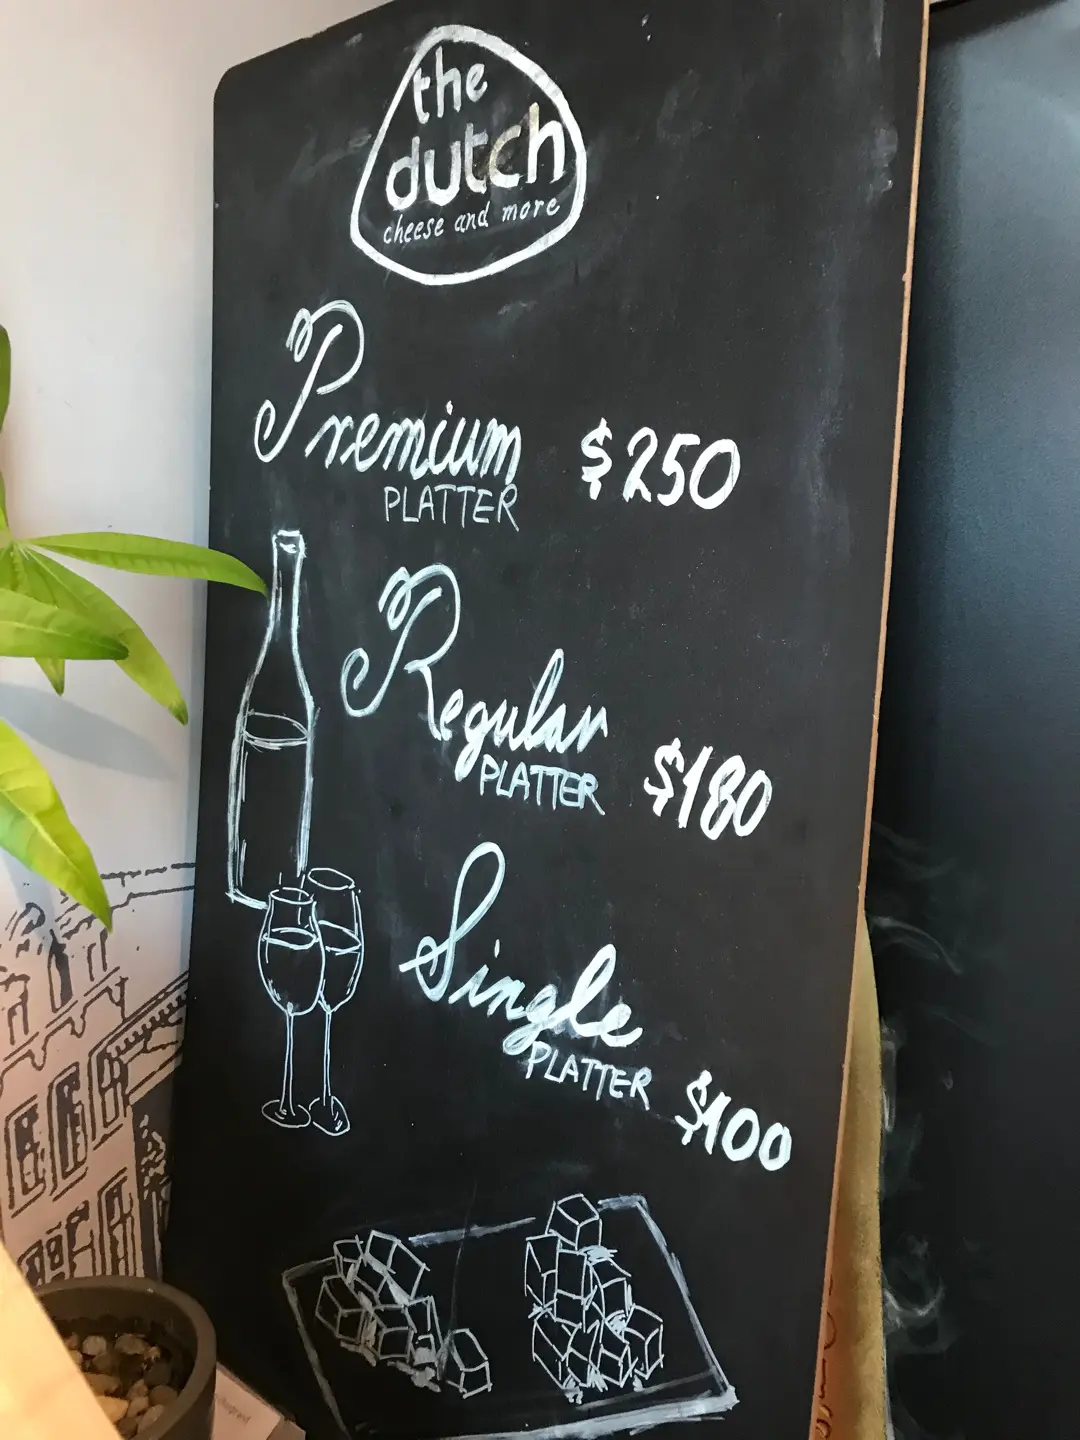 the
dutch
cheese and more
Premium
PLATTER
$250
Regular
PLATTER
$180
Single
PLATTER
$100